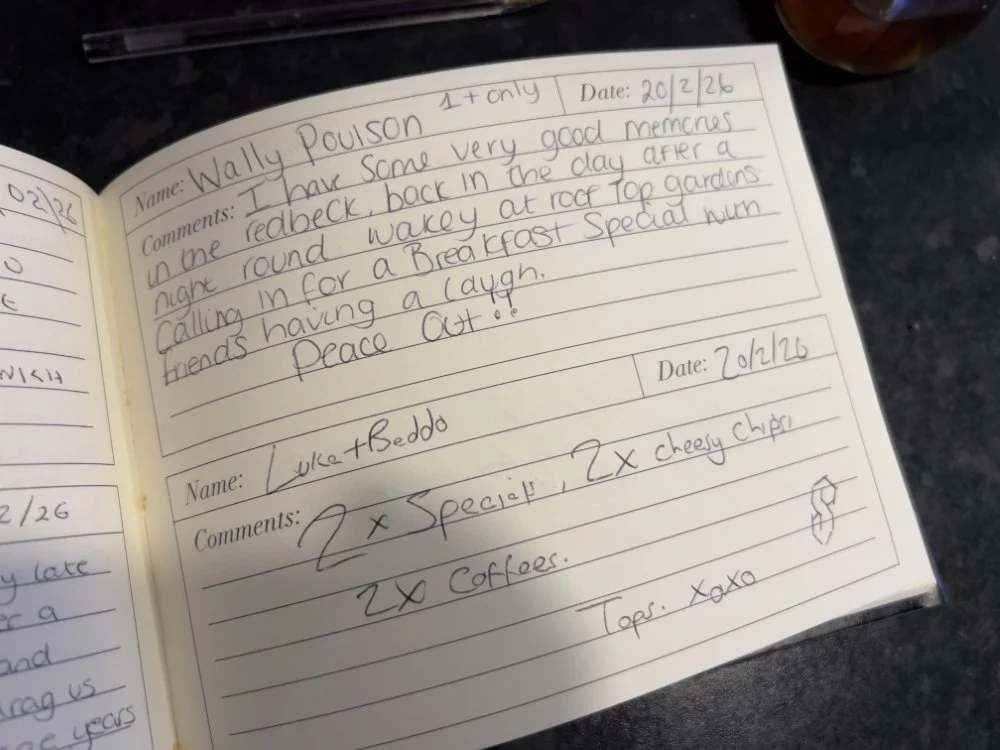 02/26
2/26
y late
and
drag us
years
1 + only
Date: 20/2/26
Name: Wally Poulson
Comments: I have Some very good memories
in the redbeck, back in the day after a
night round wakey at roof Top gardens.
Calling in for a Breakfast Special with
friends having a laugh.
Peace Out!!
Date: 20/2/26
Name: Luke + Beddo
Comments: 2 x Specials, 2x cheesy chips
2x Coffees.
Tops. xoxo